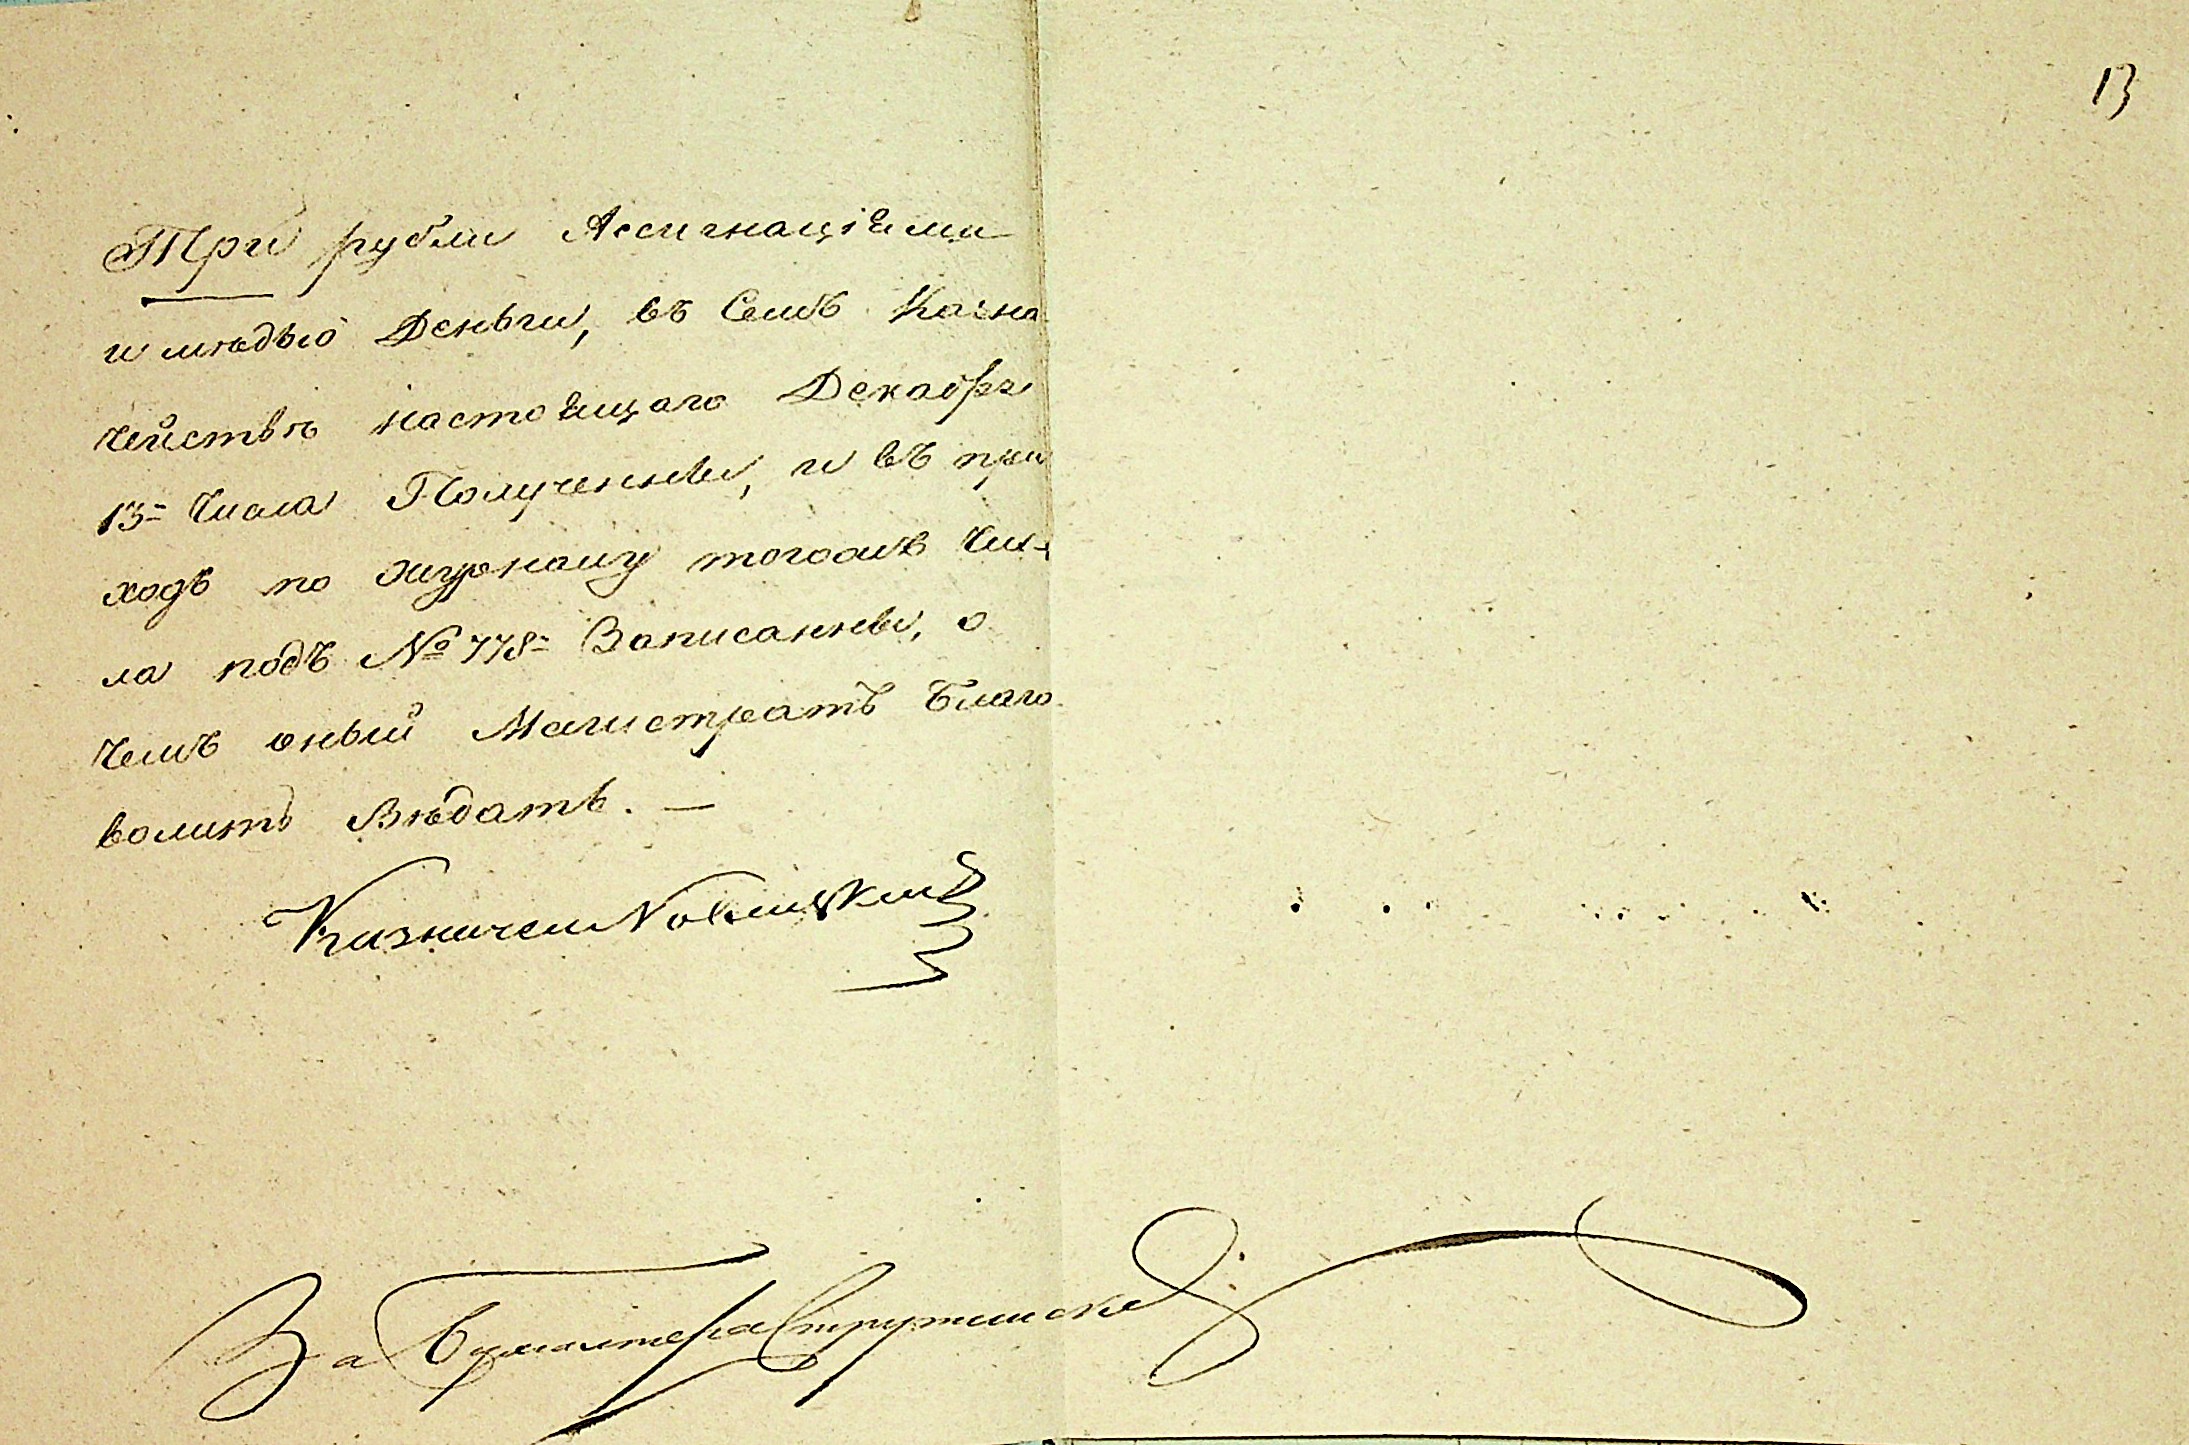 13
Три рубли Ассигнаціями
и мѣдью Деньги, въ Семъ Казна
чействѣ настоящаго Декабря
13- Числа Полученны, и въ при
ходъ по журналу тогожъ Чис-
ла подъ № 778- Записанны, о
Чемъ оный Магистратъ Благо
волитъ Вѣдать. —
Казначей Новицкий
За Бухгалтера